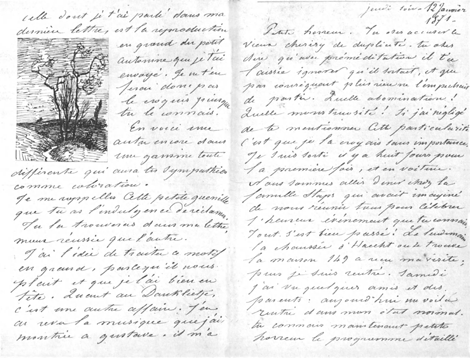 celle dont je t'ai parlé dans ma
dernière lettre, est la reproduction
en grand du petit
automne que je t'ai
envoyé. Je ne t'en
ferai donc pas
le croquis puisque
tu le connais.
En voici une
autre encore dans
une gamme toute
différente qui aura tes sympathies
comme coloration.
Je me rappelle cette petite guenille
que tu as l'indulgence de réclamer.
Tu la trouveras dans ma lettre
mieux réussie que l'autre.
J'ai l'idée de traiter ce motif
en grand, puisqu'il nous
plait et que je l'ai bien en
tête. Quant au
c'est une autre affaire. J'en
ai vu la musique que j'ai
montrée à gustave. il m'a
jeudi soir 12 Janvier
1871.
Petite horreur. Tu oses accuser le
vieux de duplicité. tu oses
dire qu'avec préméditation il t'a
laissée ignorer qu'il sortait, et que
par conséquent plus rien l'empêchait
de partir. Quelle abomination!
Quelle monstruosité! Si j'ai négligé
de te mentionner cette particularité
c'est que je la croyais sans importance.
Je suis sorti il y a huit jours pour
la première fois, et en voiture.
Nous sommes allés diner chez la
famille qui avait imaginé
de nous réunir tous pour célébrer
l'heureux événement que tu connais.
Tout s'est bien passé! Le lendemain
la chaussée d'Haecht où se trouve
la maison 149 a reçu ma visite;
puis je suis rentré. Samedi
j'ai vu quelques amis et des
parents. aujourd'hui me voilà
rentré dans mon état normal.
tu connais maintenant petite
horreur le programme détaillé